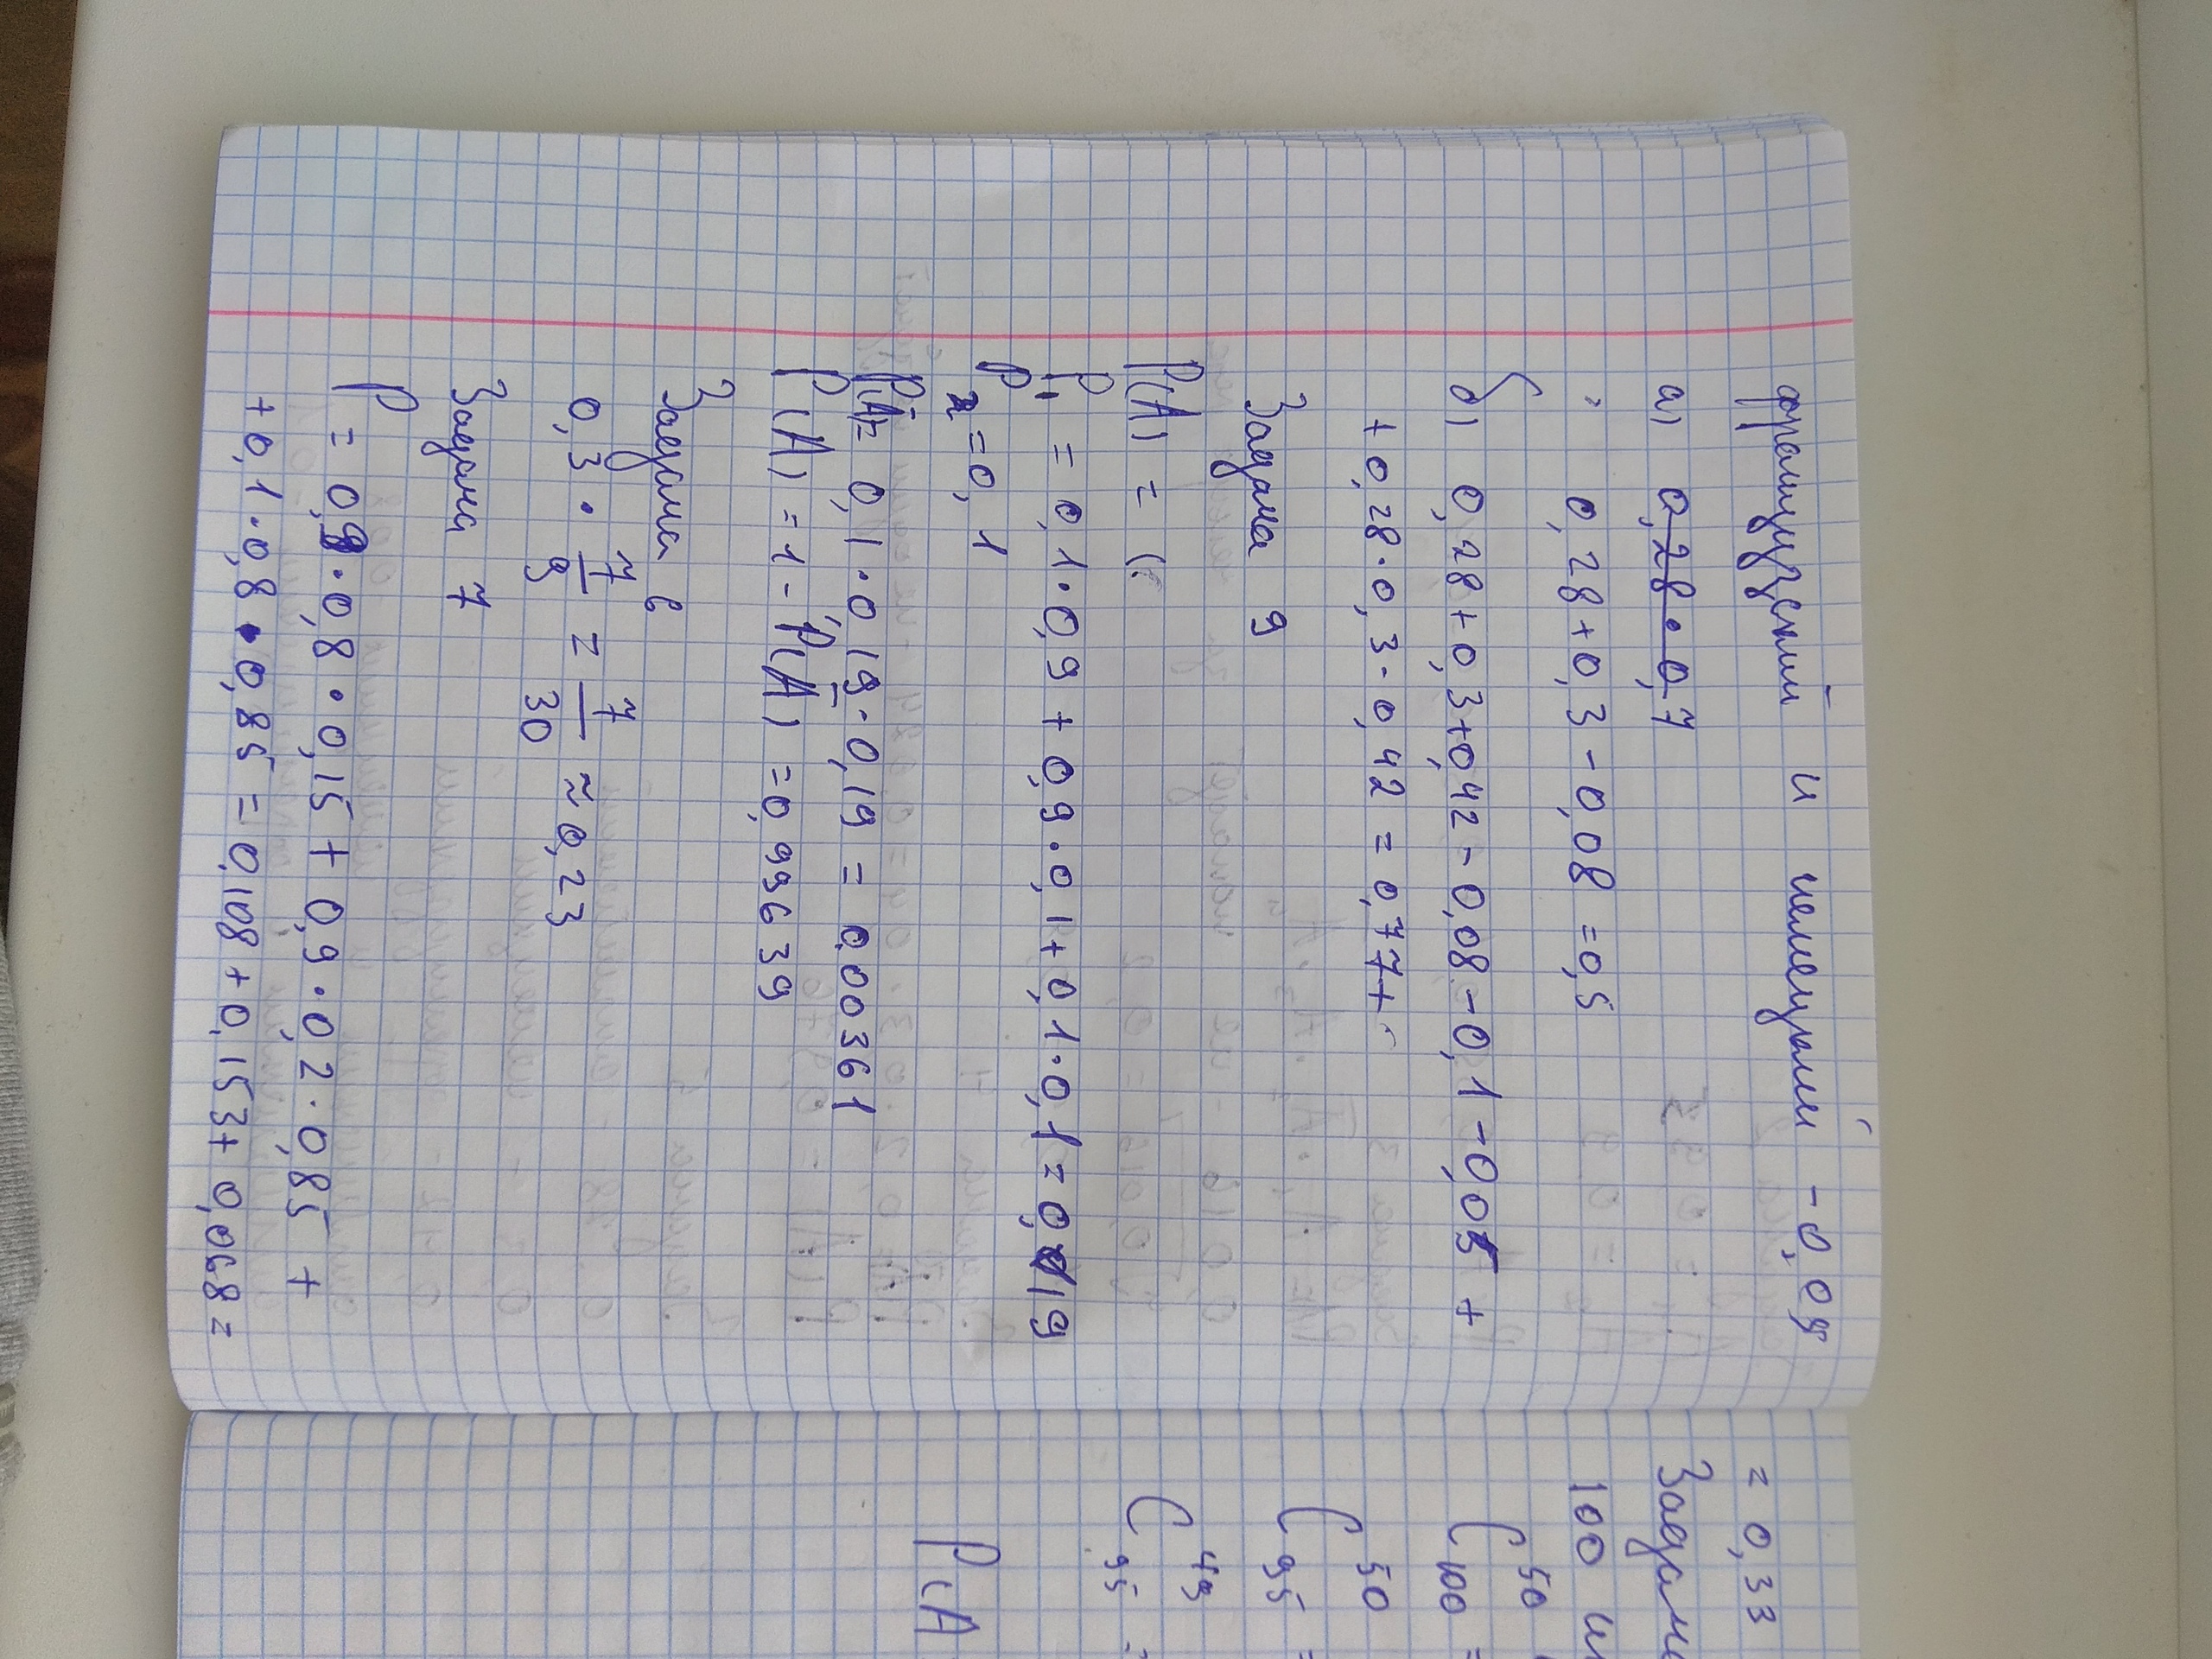 французский и немецкий - 0,05
а) 0,28 · 0,7
0,28 + 0,3 - 0,08 = 0,5
б) 0,28 + 0,3 + 0,42 - 0,08 - 0,1 - 0,05 +
+ 0,28 · 0,3 · 0,42 = 0,77 +
Задача 9
P(A) = (
P₁ = 0,1 · 0,9 + 0,9 · 0,1 + 0,1 · 0,1 = 0,19
P₂ = 0,1
P(Ā) = 0,1 · 0,19 · 0,19 = 0.00361
P(A) = 1 - P(Ā) = 0,99639
Задача 6
0,3 · 7/9 = 7/30 ≈ 0,23
Задача 7
P = 0,9 · 0,8 · 0,15 + 0,9 · 0,2 · 0,85 +
+ 0,1 · 0,8 · 0,85 = 0,108 + 0,153 + 0,068 =
= 0,33
Задача
100
C⁵⁰₁₀₀ =
C⁵⁰₉₅ =
C⁴⁹₉₅ =
P(A